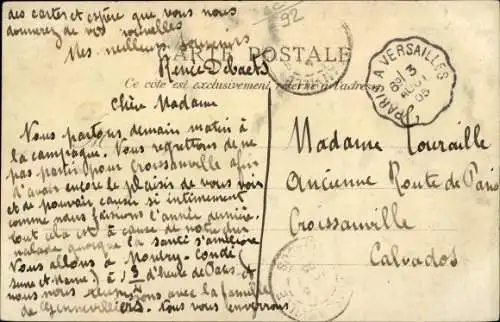 des cartes et espère que vous nous
donnerez de vos nouvelles
Mes meilleurs souvenirs
Renée Debacks
CARTE POSTALE
Ce côté est exclusivement réservé à l'adresse
92
PARIS A VERSAILLES
3
AOUT
05
Chère Madame
Nous partons demain matin à
la campagne. Nous regrettons de ne
pas partir pour Croissanville afin
d'avoir encore le plaisir de vous voir
et de pouvoir causer si intimement
comme nous faisions l'année dernière.
Tout cela est à cause de notre
malade quoique la santé s'améliore
Nous allons à Condé
à 1 3 d'heure de Paris et
nous nous réunissons avec la famille
de Gennevilliers. Vous nous enverrons
Madame Touraille
Ancienne Route de Paris
Croissanville
Calvados